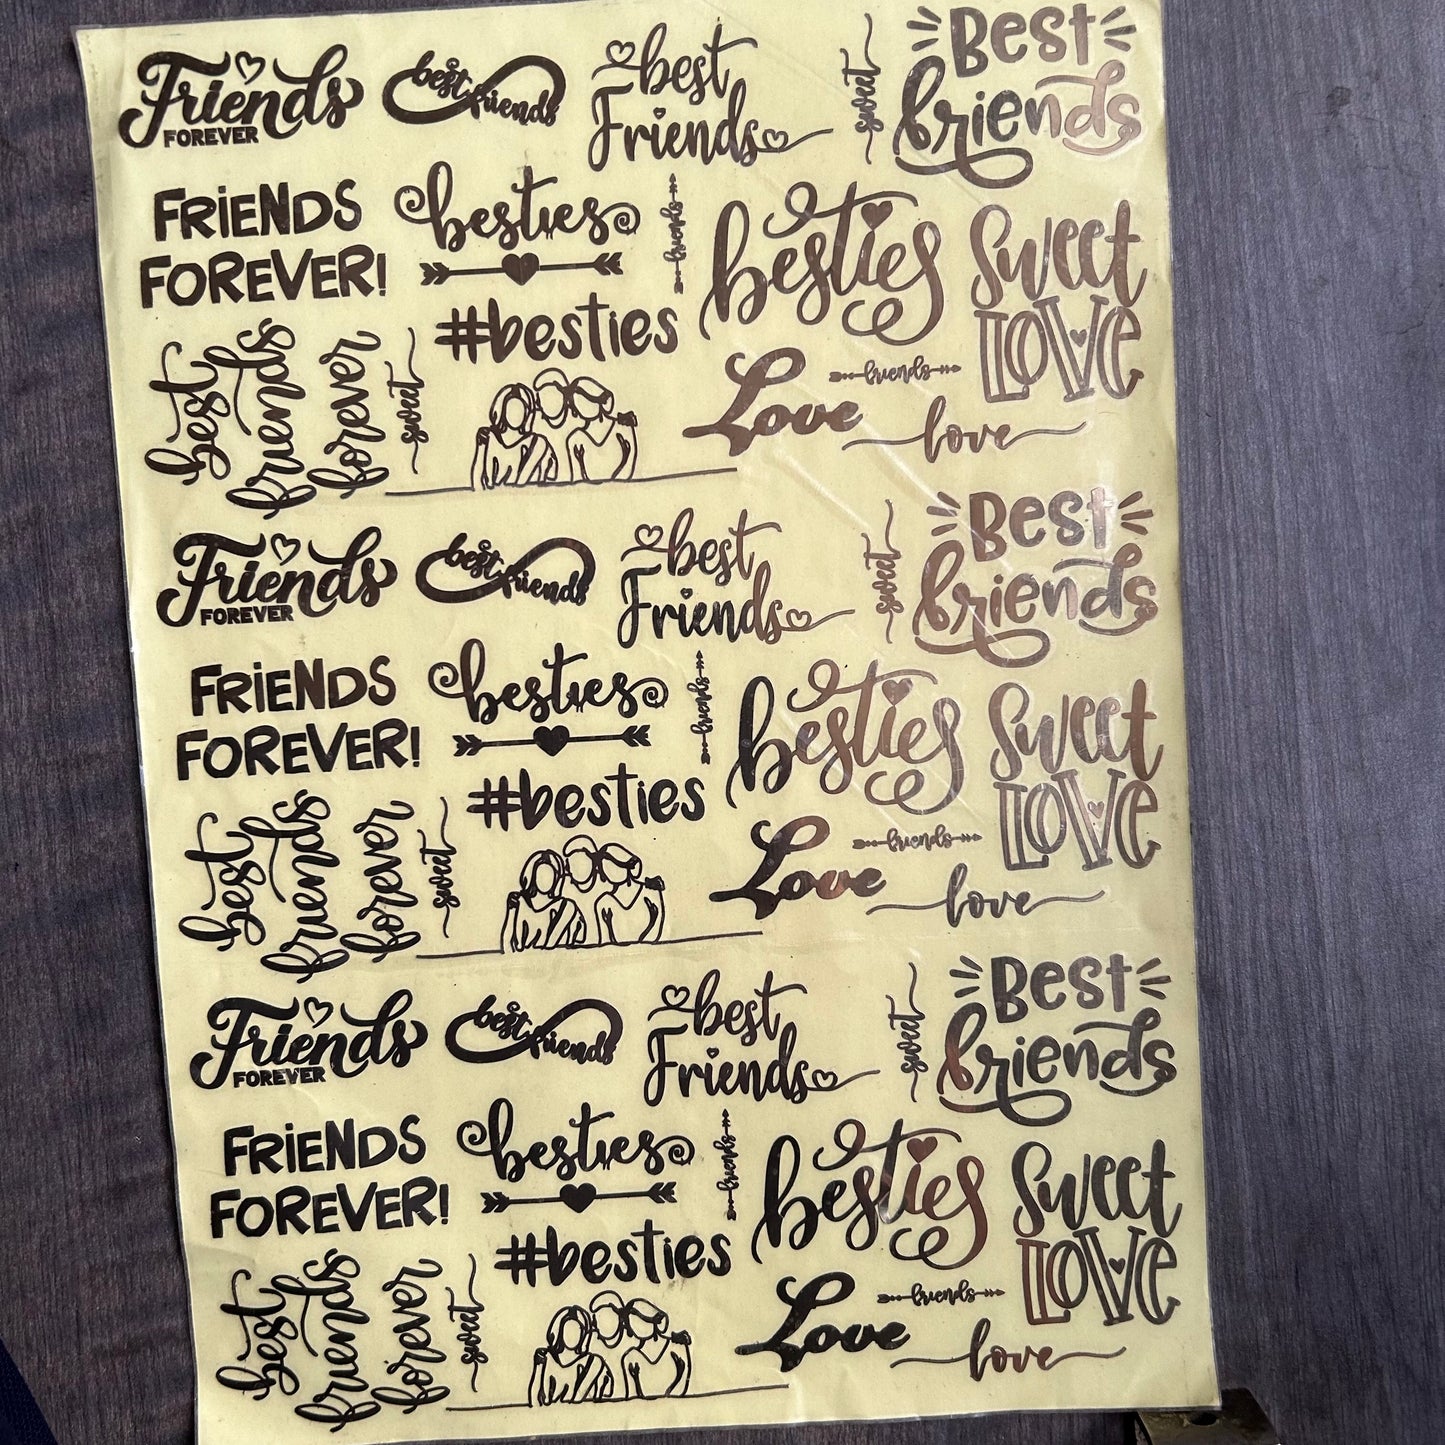 Friends
FOREVER
best friends
best
Friends
sweet
Best
friends
FRIENDS
FOREVER!
besties
friends
besties
sweet
LOVE
#besties
best
friends
forever
sweet
Love
friends
love
Friends
FOREVER
best friends
best
Friends
sweet
Best
friends
FRIENDS
FOREVER!
besties
friends
besties
sweet
LOVE
#besties
best
friends
forever
sweet
Love
friends
love
Friends
FOREVER
best friends
best
Friends
sweet
Best
friends
FRIENDS
FOREVER!
besties
friends
besties
sweet
LOVE
#besties
best
friends
forever
sweet
Love
friends
love